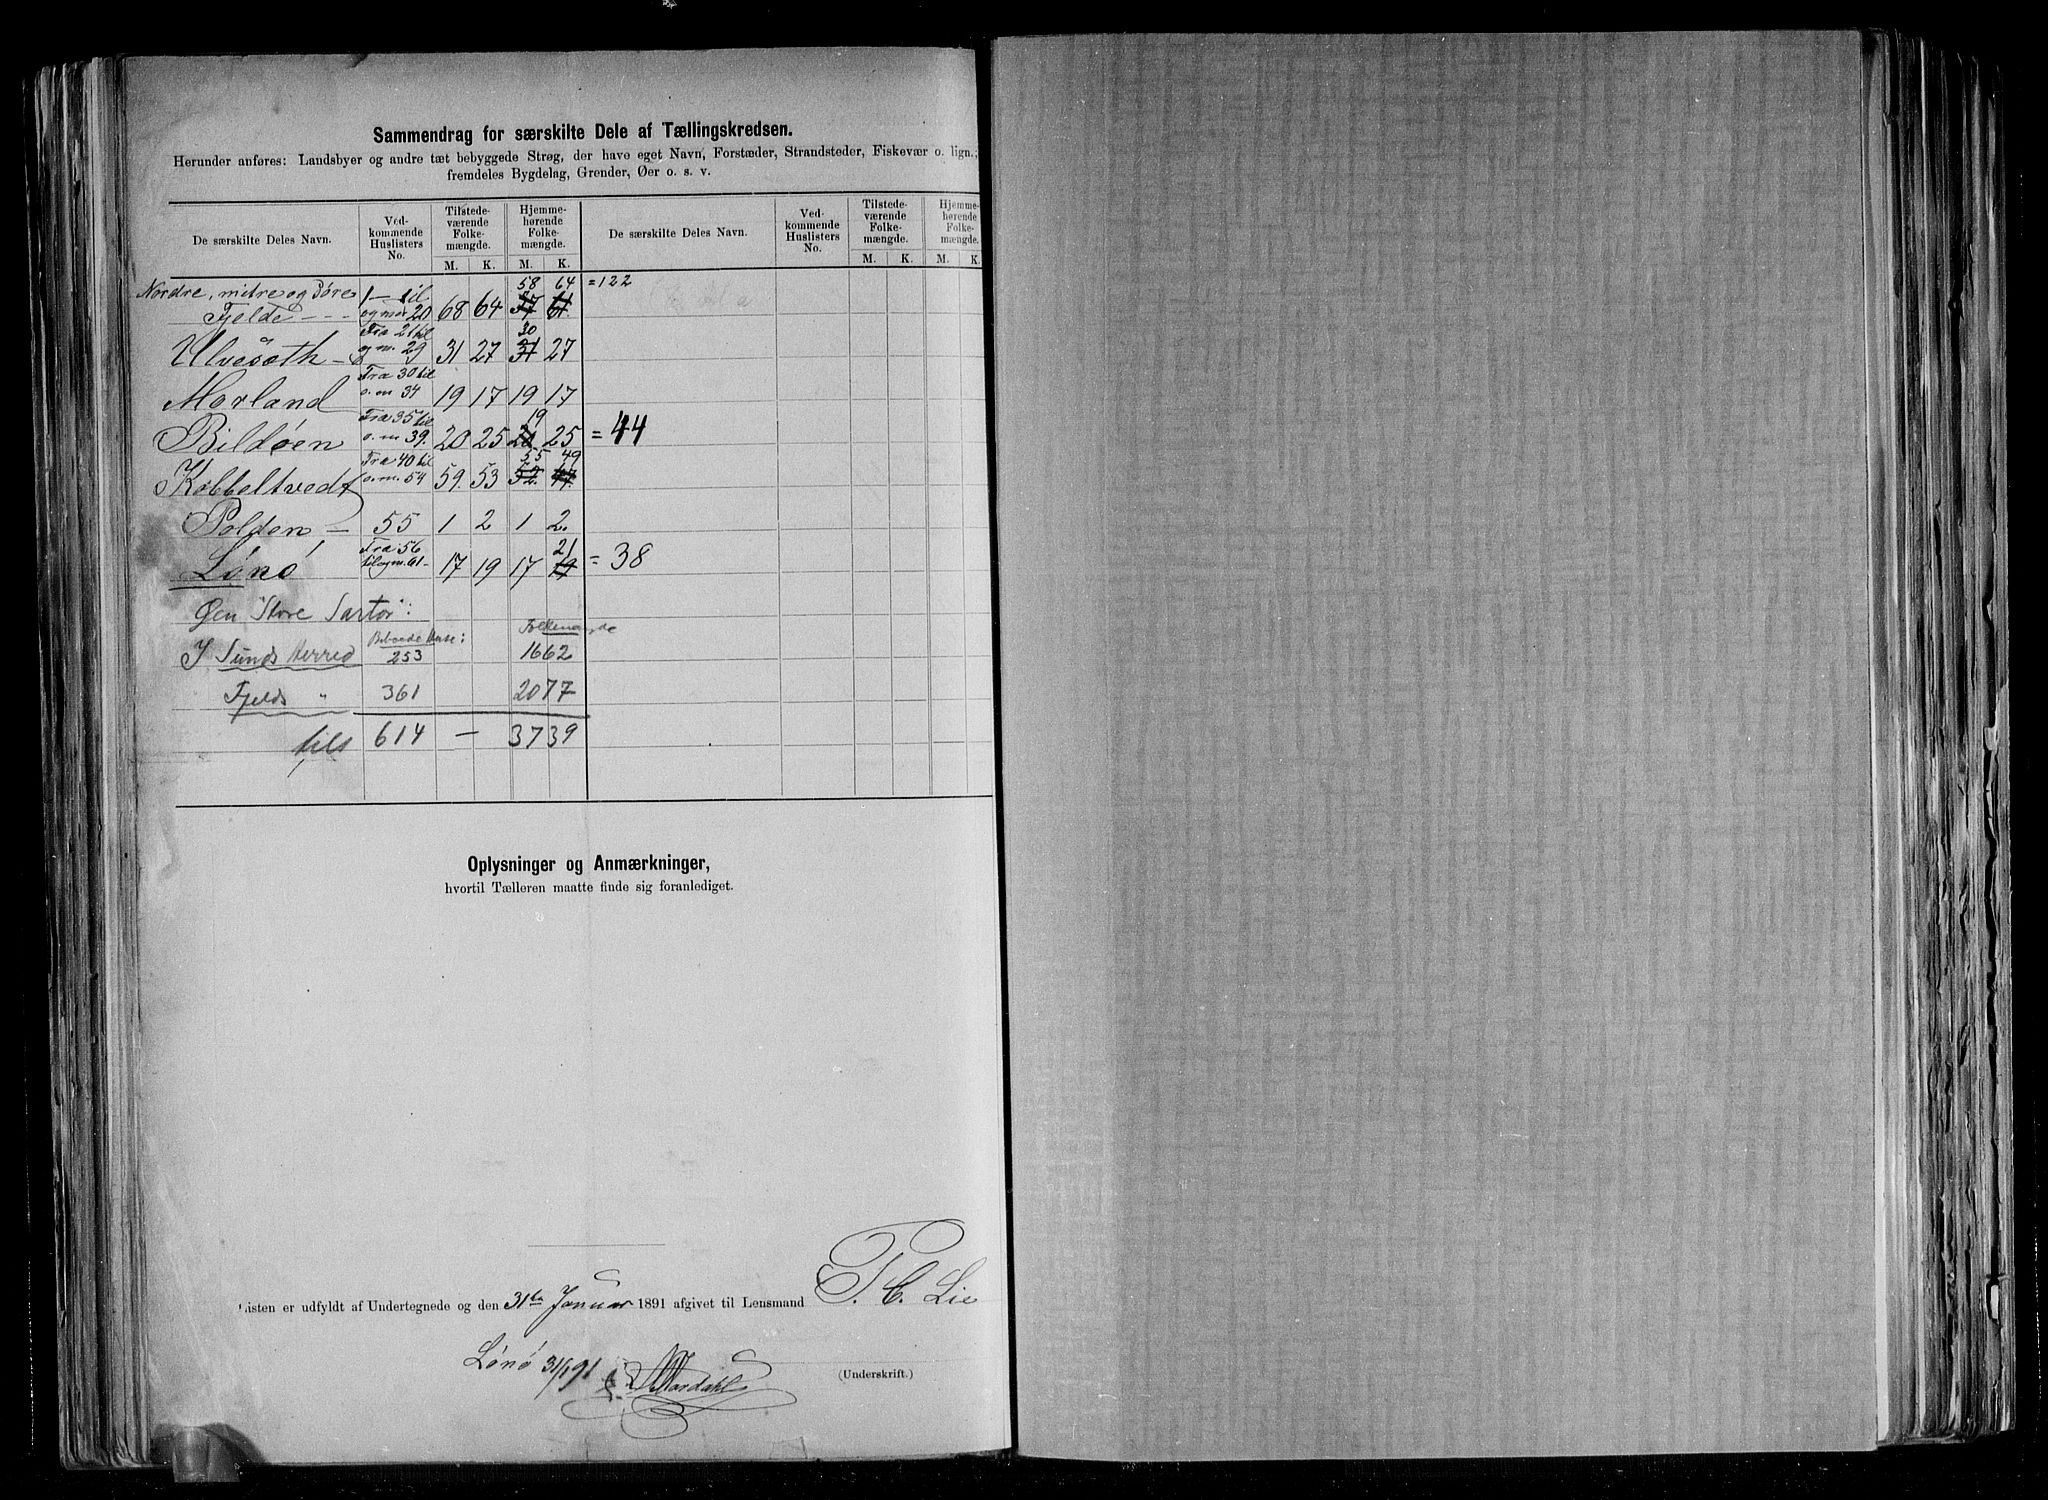 Sammendrag for særskilte Dele af Tællingskredsen.
Herunder anføres: Landsbyer og andre tæt bebyggede Strøg, der have eget Navn, Forstæder, Strandsteder, Fiskevær o. lign.;
fremdeles Bygdelag, Grender, Øer o. s. v.
De særskilte Deles Navn. Ved-kommende Huslisters No. Tilstede-værende Folke-mængde. Hjemme-hørende Folke-mængde. De særskilte Deles Navn. Ved-kommende Huslisters No. Tilstede-værende Folke-mængde. Hjemme-hørende Folke-mængde.
M. K. M. K. M. K. M. K.
58 64 = 122
Nordre, midre og Søre 1 — til
Fjelde - - - og med 20 68 64 57 61
Fra 21 til 30
Ulvesæth — og m. 29 31 27 31 27
Fra 30 til
Morland o. m 34 19 17 19 17
Fra 35 til 19
Bildøen o. m 39. 20 25 20 25 = 44
Fra 40 til 55 49
Kobbeltvedt o. m. 54 59. 53 52. 47
Polden — 55 1 2 1 2.
Fra 56 21
Lønø til og m. 61 - 17 19 17 19 = 38
Øen "Store Sartor":
Beboede Huse: Folkemængde
I Sunds Herred 253 1662
Fjelds " 361 2077
tils 614 — 3739
Oplysninger og Anmærkninger,
hvortil Tælleren maatte finde sig foranlediget.
Listen er udfyldt af Undertegnede og den 31te Januar 1891 afgivet til Lensmand T. C. Lie
Lønø 31/1 91
(Underskrift.)